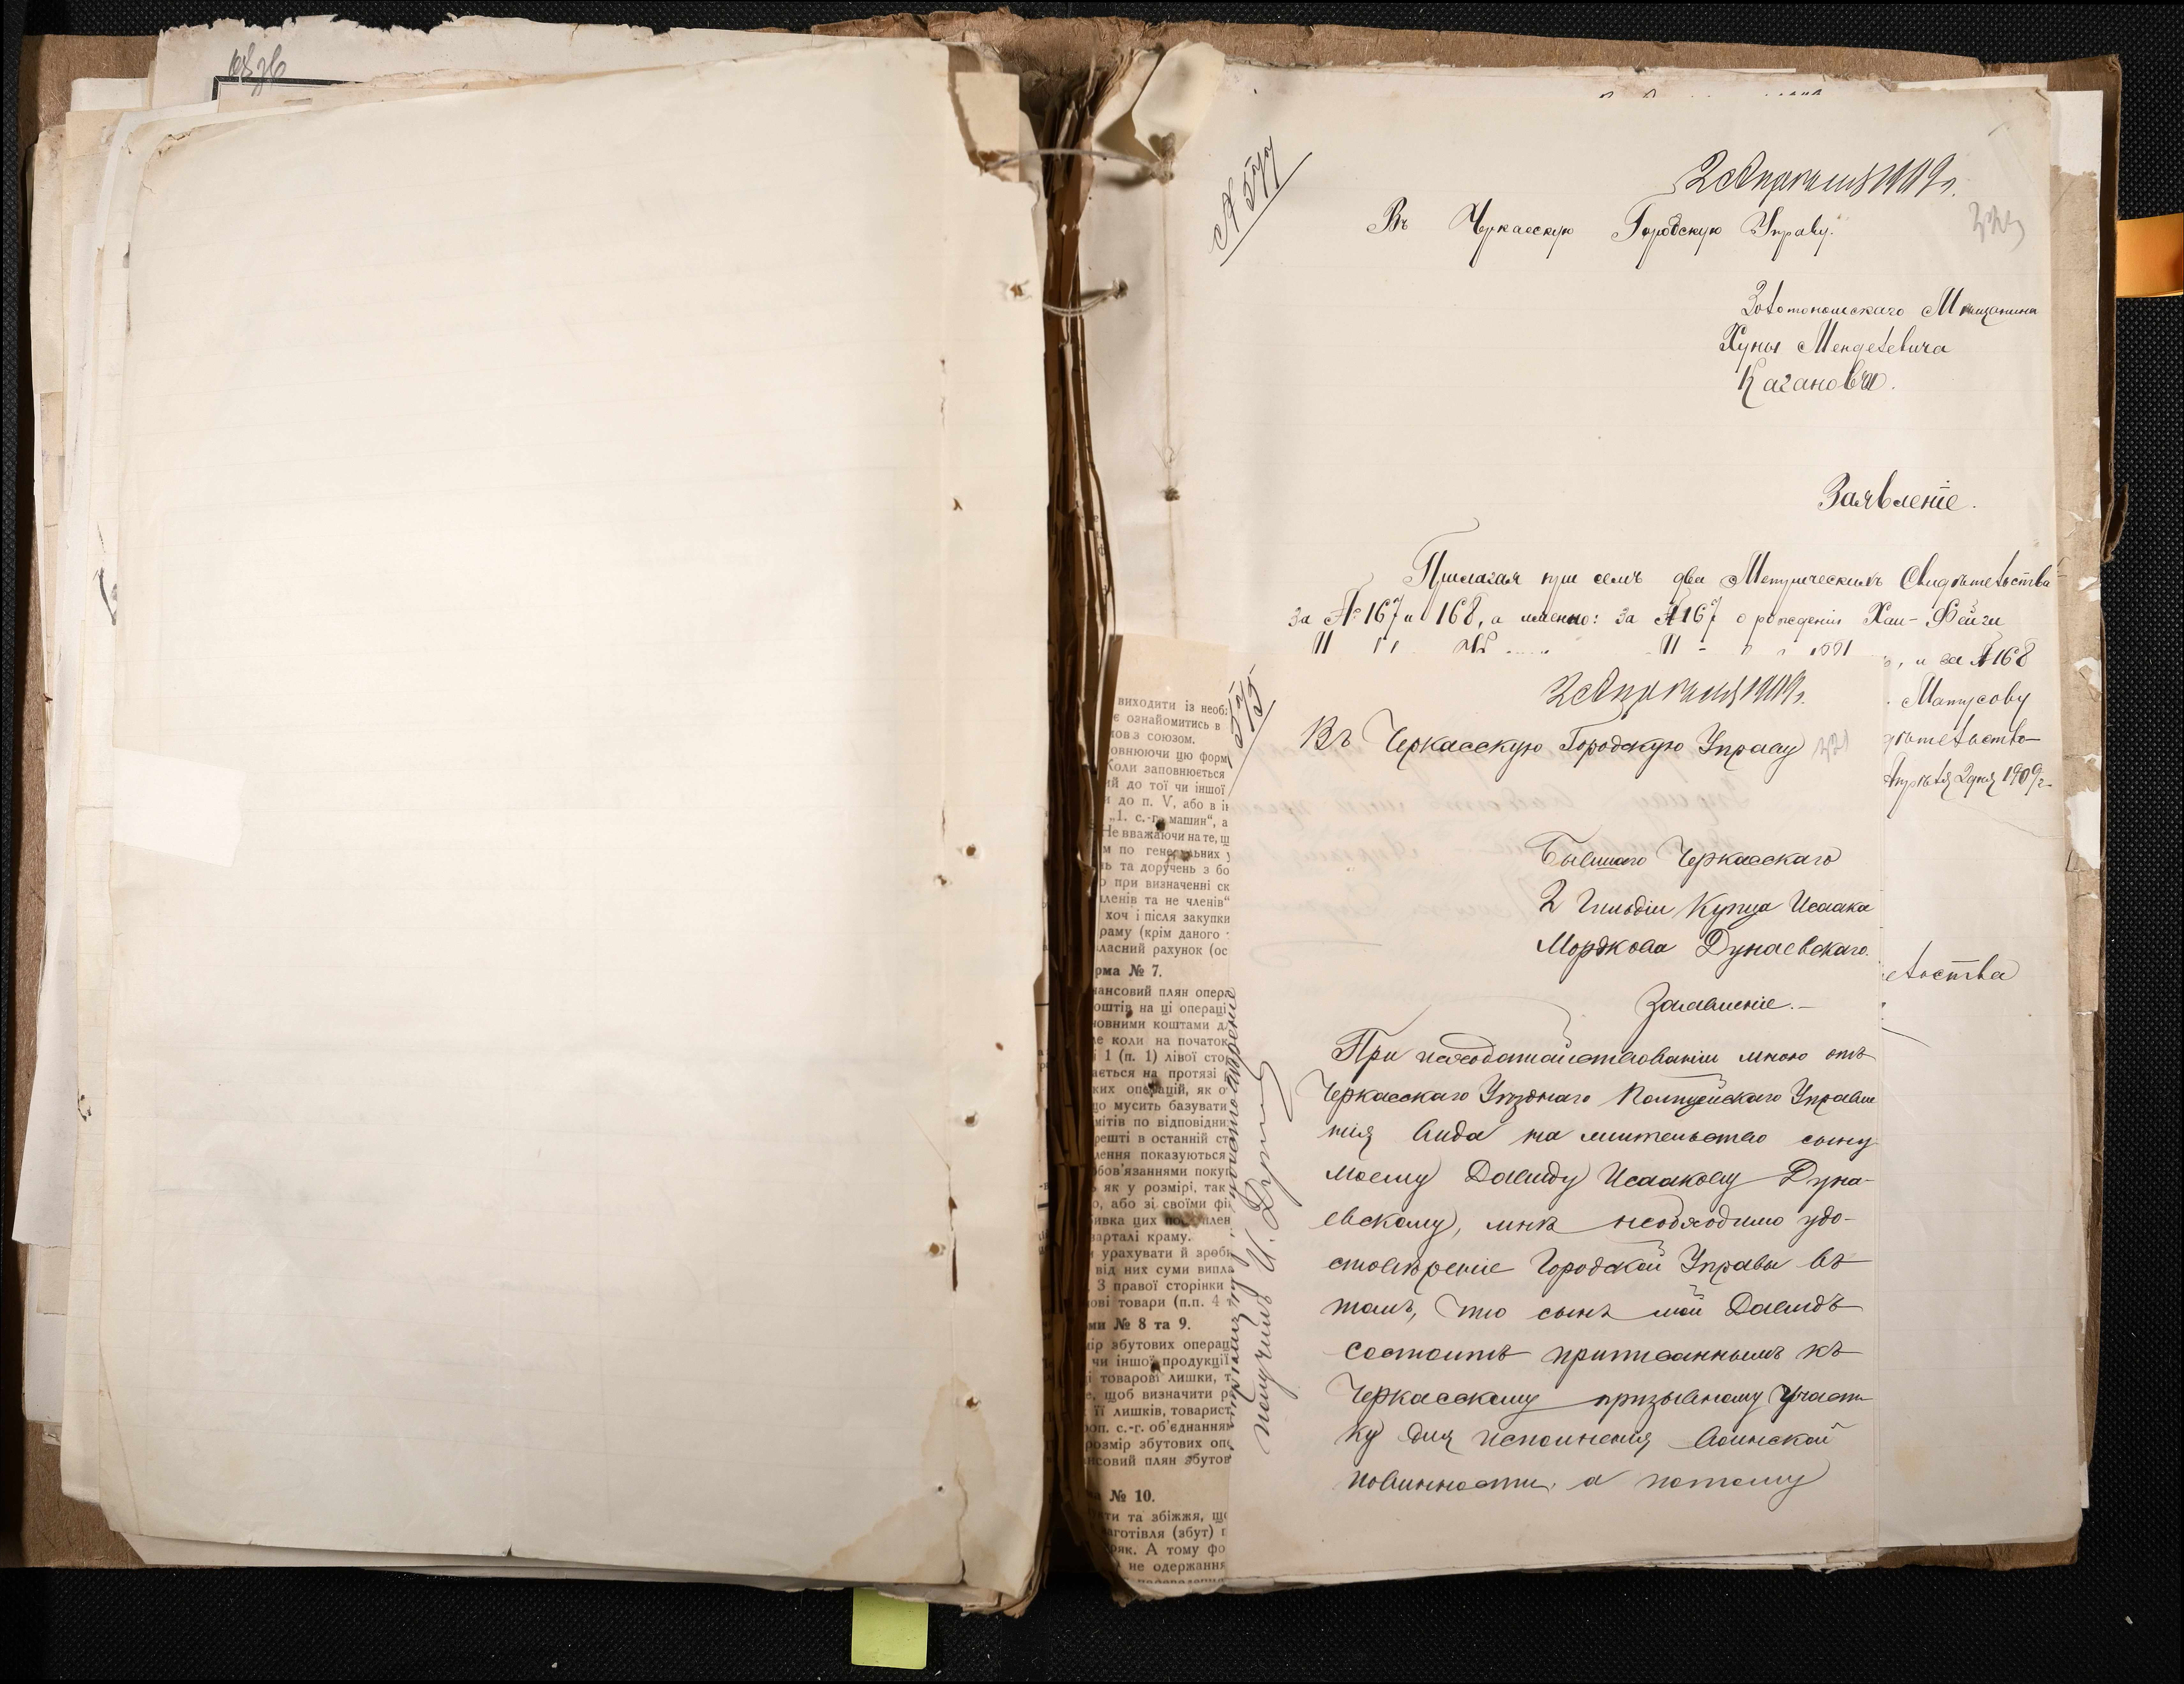 № 577
2 Апрѣля 1909 г.
Въ Черкасскую Городскую Управу.
Золотоношскаго Мѣщанина
Хуны Менделевича
Каганова.
Заявленіе.
Прилагая при семъ два Метрическихъ Свидѣтельства
за № 167 и 168, а именно: за № 167 о рожденіи Хаи-Фейги
, и за № 168
Матусову
дѣтельство
Апрѣля 2 дня 1909 г.
ельства
575
2 Апрѣля 1909 г.
Въ Черкасскую Городскую Управу
Бывшаго Черкасскаго
2 Гильдіи Купца Исаака
Мордкова Дунаевскаго.
Заявленіе.
При исходатайствованіи мною отъ
Черкасскаго Уѣзднаго Полицейскаго Управле
нія вида на жительство сыну
моему Давиду Исаакову Дуна-
евскому, мнѣ необходимо удо-
стовѣреніе Городской Управы въ
томъ, что сынъ мой Давидъ
состоитъ приписаннымъ къ
Черкасскому призывному участ
ку для исполненія воинской
повинности, а потому
удостовѣреніе
получилъ И. Дунаев
виходити із необх
є ознайомитись в
мов з союзом.
овнюючи цю форм
Коли заповнюється
ий до тої чи іншої
и до п. V, або в ін
„1. с.-г. машин“, а
Не вважаючи на те, щ
м по генеральних у
ь та доручень з бо
о при визначенні ск
членів та не членів“
хоч і після закупки
раму (крім даного
ласний рахунок (ос
рма № 7.
нансовий плян опера
оштів на ці операці
новними коштами дл
е коли на початок
і 1 (п. 1) лівої сто
ається на протязі
ких операцій, як о
що мусить базувати
мітів по відповідни
решті в останній ст
лення показуються
бов'язаннями покуп
як у розмірі, так
о, або зі своїми фі
ивка цих по плен
варталі краму.
и урахувати й зроби
від них суми випла
З правої сторінки
ові товари (п.п. 4
ми № 8 та 9.
мір збутових операц
чи іншої продукції
і товарові лишки, т
е, щоб визначити р
її лишків, товарист
оп. с.-г. об'єднання
розмір збутових опе
нсовий плян збутов
а № 10.
ти та збіжжя, що
аготівля (збут) п
ряк. А тому фо
не одержання